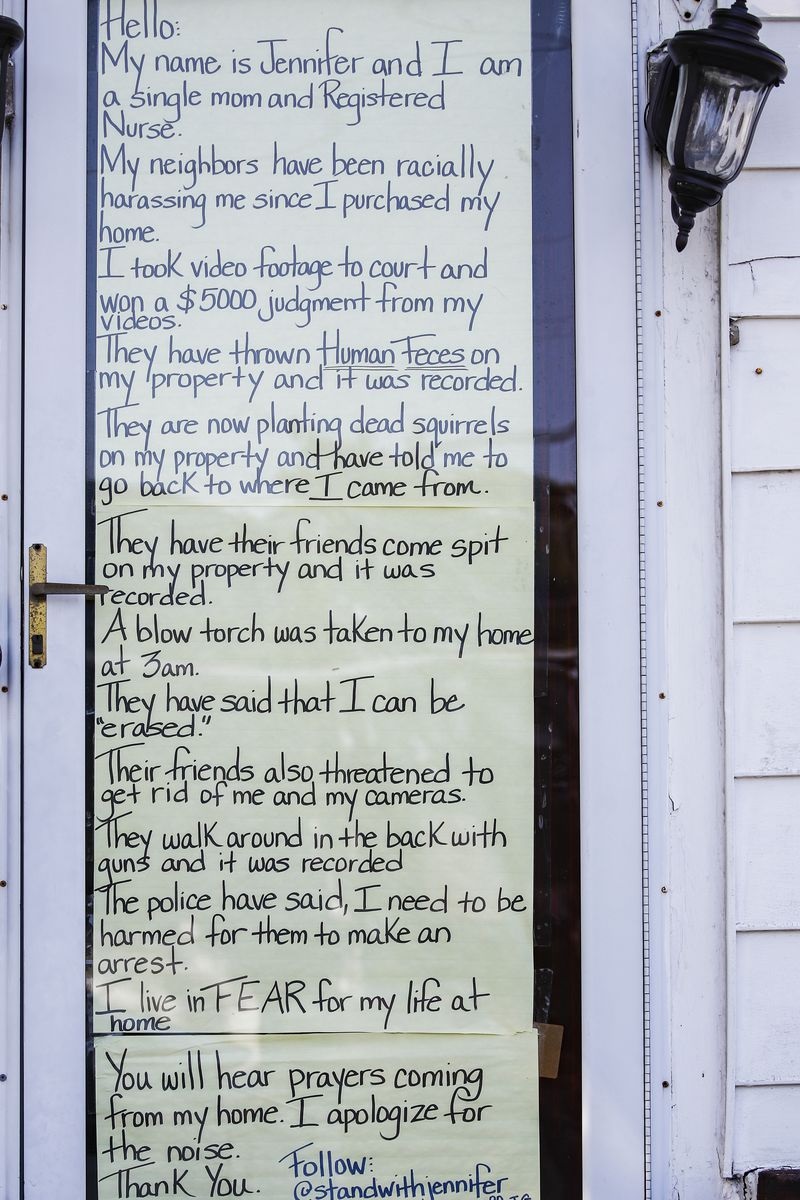 Hello:
My name is Jennifer and I am
a single mom and Registered
Nurse.
My neighbors have been racially
harassing me since I purchased my
home.
I took video footage to court and
won a $5000 judgment from my
videos.
They have thrown Human Feces on
my property and it was recorded.
They are now planting dead squirrels
on my property and have told me to
go back to where I came from.
They have their friends come spit
on my property and it was
recorded.
A blow torch was taken to my home
at 3am.
They have said that I can be
"erased."
Their friends also threatened to
get rid of me and my cameras.
They walk around in the back with
guns and it was recorded
The police have said, I need to be
harmed for them to make an
arrest.
I live in FEAR for my life at
home
You will hear prayers coming
from my home. I apologize for
the noise.
Thank You. Follow:
@standwithjennifer